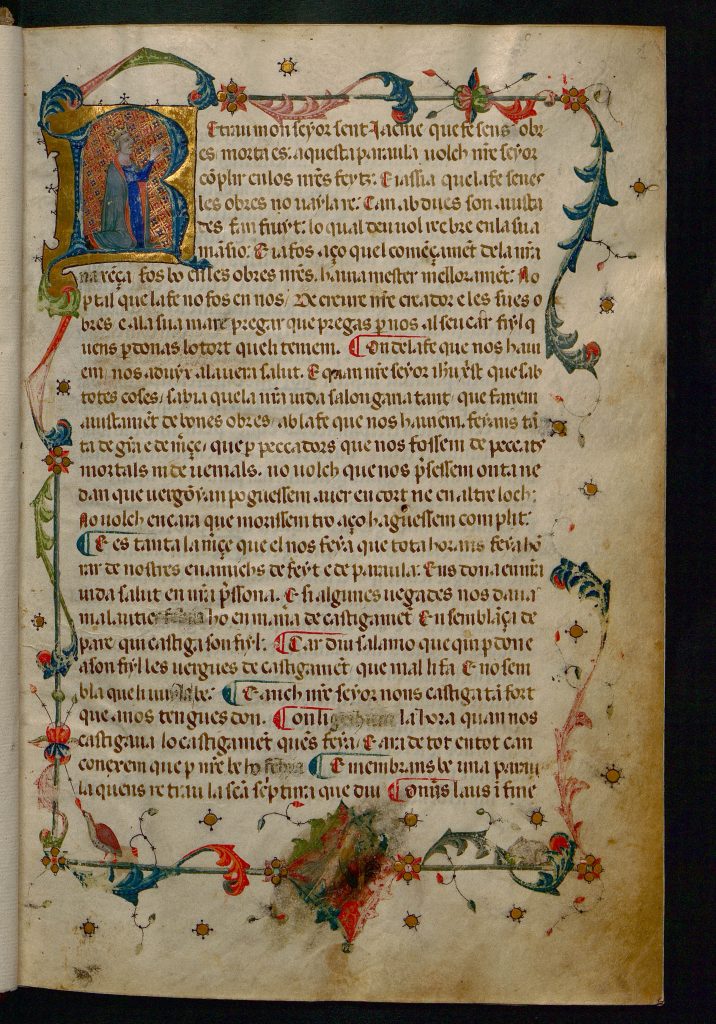 Retrau mon seyor sent Jacme que fe sens obr
es morta es: aquesta paraula volch nr̃e seyor
cõplir en los nr̃es feyts: E ia ssia que la fe senes
les obres no vayla re: Can abdues son aiusta
des fan fruyt: lo qual deu vol reebre en la sua
mansio: E ia fos aço quel començamẽt de la nr̃a
naxẽça fos bo en les obres nr̃es. havia mester mellloramẽt: No
p tal que la fe no fos en nos, De creure nr̃e creador e les sues o
bres e a la sua mare pregar que pregas p nos al seu car fiyl q
uens pdonas lo tort queli teniem. On de la fe que nos havi
em nos aduyx a la vera salut. E quan nr̃e seyor ihũ xr̃st que sab
totes coses, sabia que la nr̃a vida salongaria tant, que fariem
aiustamẽt de bones obres, ab la fe que nos haviem. feyans tã
ta de gr̃a e de mr̃çe, que p peccadors que nos fossem de peccats
mortals ni de venials. no volch que nos p̃sessem onta ne
dan que vergoyan poguessem aver en cort ne en altre loch:
No volch encara que morissem tro aço haguessem complit.
E es tanta la mr̃çe que el nos feya que tota hora ns feya hõ
rar de nostres enamichs de feyt e de paraula. E ns dona en nr̃a
vida salut en nr̃a p̃ssona. E si algunes vegades nos dava
malauties ho en maña de castigamẽt E n semblãça de
pare qui castiga son fiyl. Car diu salamo que qui pdone
a son fiyl les vergues de castigamẽt que mal li fa E no sem
bla que li vuyla be: E anch nr̃e seyor no ns castiga tã fort
que a nos tengues don. la hora quan nos
castigava lo castigamẽt que ns feya, E ara de tot en tot can
conexem que p nr̃e be E membrans be una parau
la quens retrau la scã scriptura que diu Om̃is laus ĩ fine